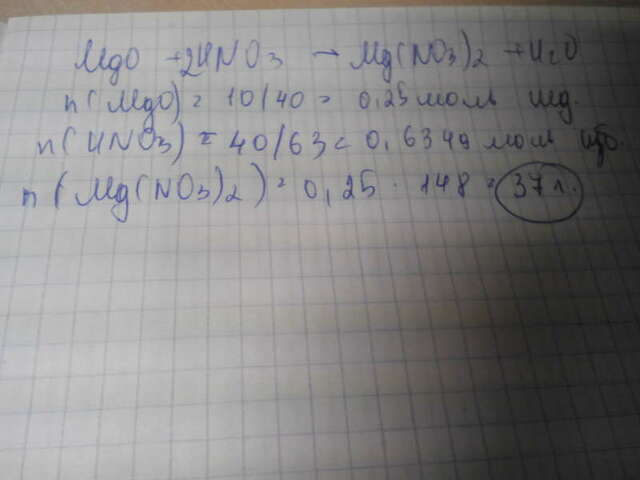 MgO +2HNO3 → Mg(NO3)2 + H2O
n(MgO) = 10/40 = 0,25 моль нед.
n(HNO3) = 40/63 = 0,6349 моль изб.
n(Mg(NO3)2) = 0,25 · 148 = 37 г.